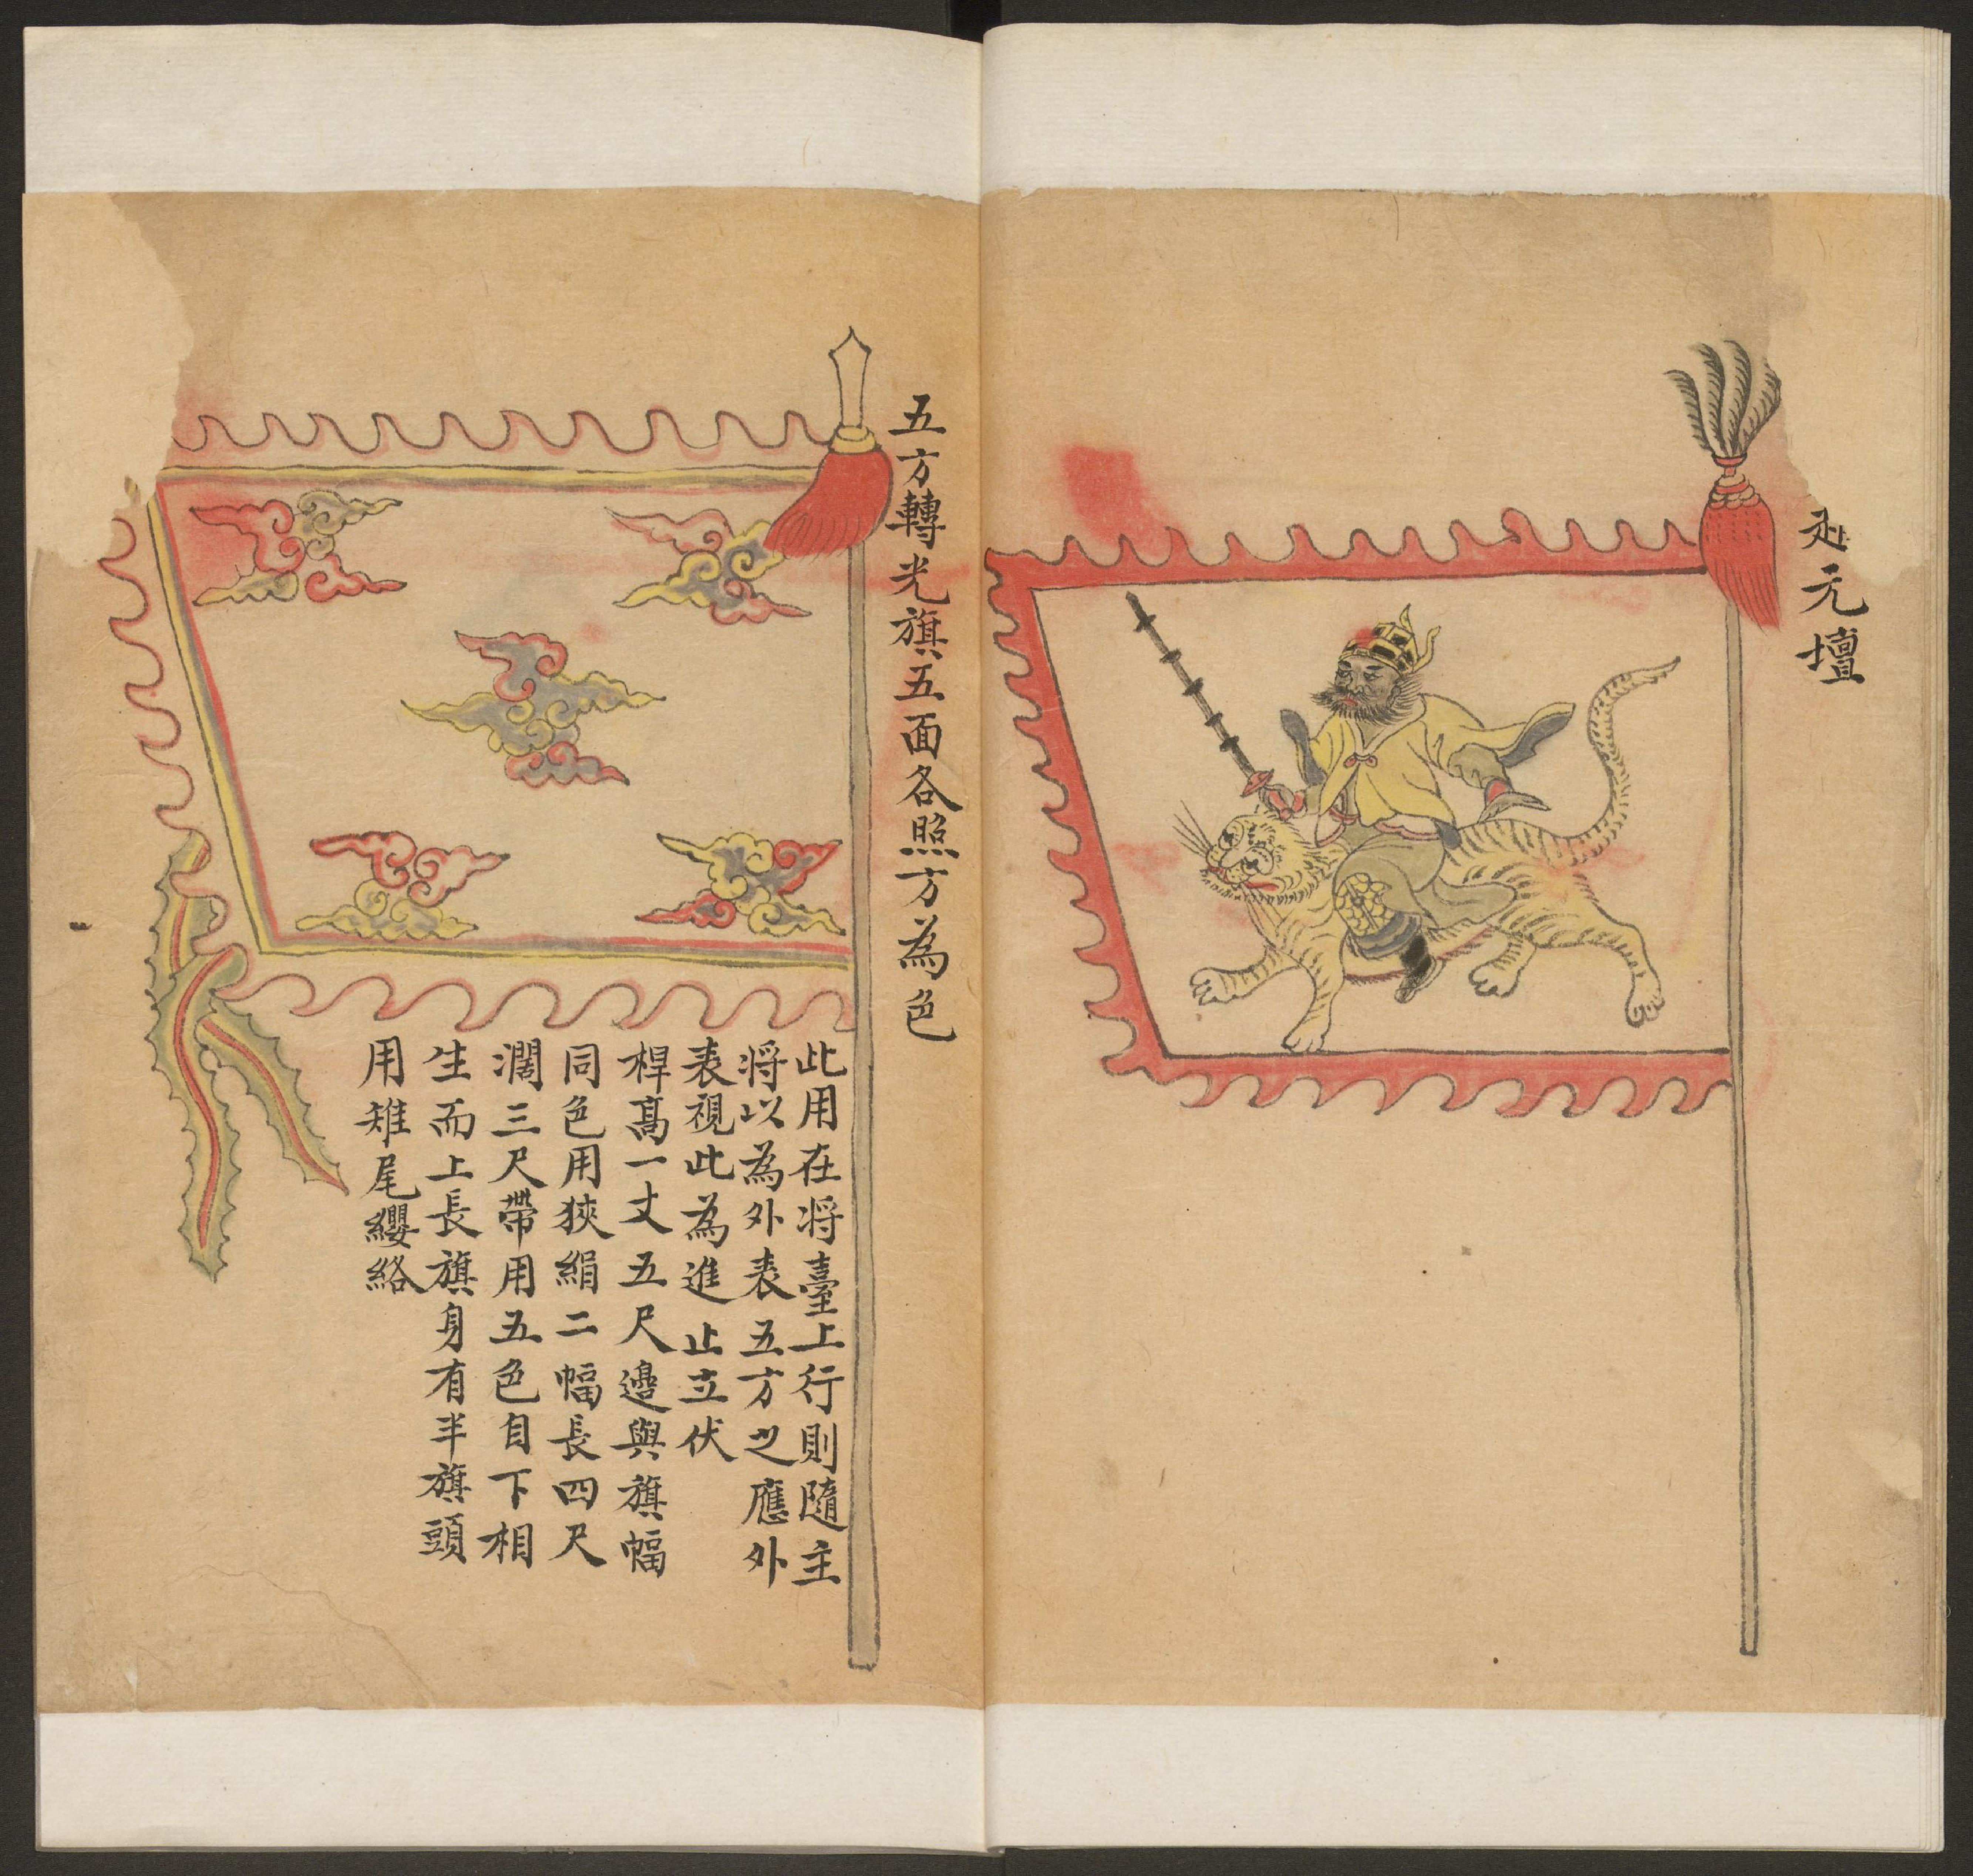 赵元壇
五方轉光旗五面各照方為色
此用在将臺上行則隨主
将以為外表五方之應外
表視此為進止立伏
桿髙一丈五尺邉與旗幅
同色用狹絹二幅長四尺
濶三尺帶用五色自下相
生而上長旗身有半旗頭
用雉尾纓絡